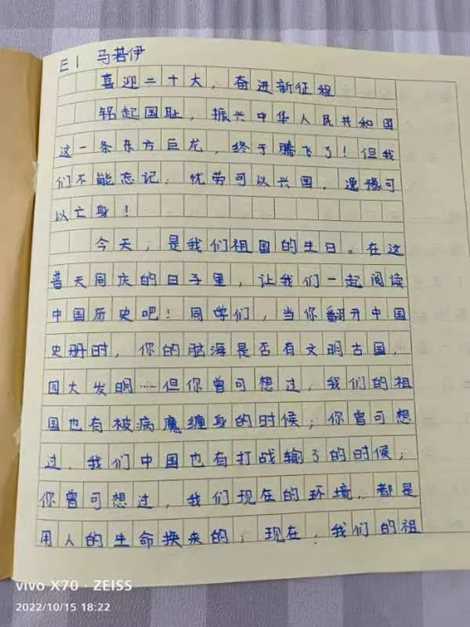 三1 马若伊
喜迎二十大，奋进新征程
铭起国耻，振兴中华人民共和国
这一条东方巨龙，终于腾飞了！但我
们不能忘记，忧劳可以兴国，逸豫可
以亡身！
今天，是我们祖国的生日。在这
普天同庆的日子里，让我们一起阅读
中国历史吧！同学们，当你翻开中国
史册时，你的脑海是否有文明古国，
四大发明……但你曾可想过，我们的祖
国也有被病魔缠身的时候；你曾可想
过，我们中国也有打战输了的时候；
你曾可想过，我们现在的环境，都是
用人的生命换来的；现在，我们的祖
vivo X70 · ZEISS
2022/10/15 18:22